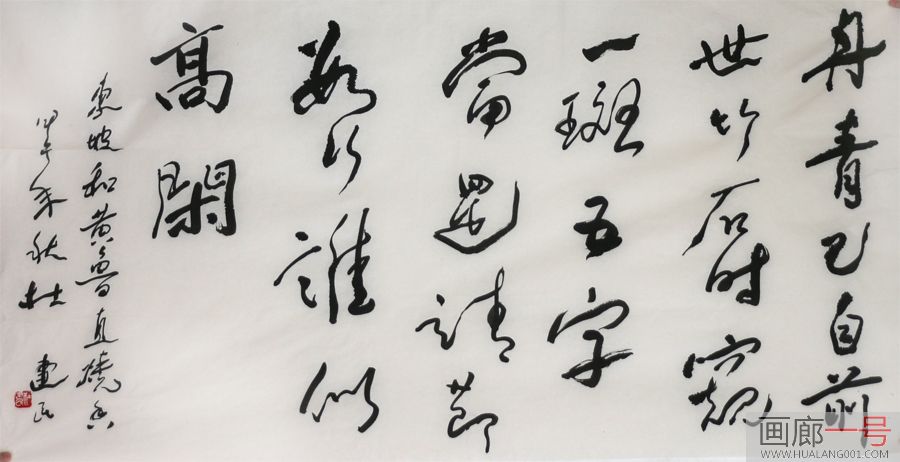 丹青已自前
世竹石时窥
一斑五字
當還靖節
數行誰似
髙閑
東坡和黄魯直燒香
甲午年秋杜建民
画廊一号
WWW.HUALANG001.COM